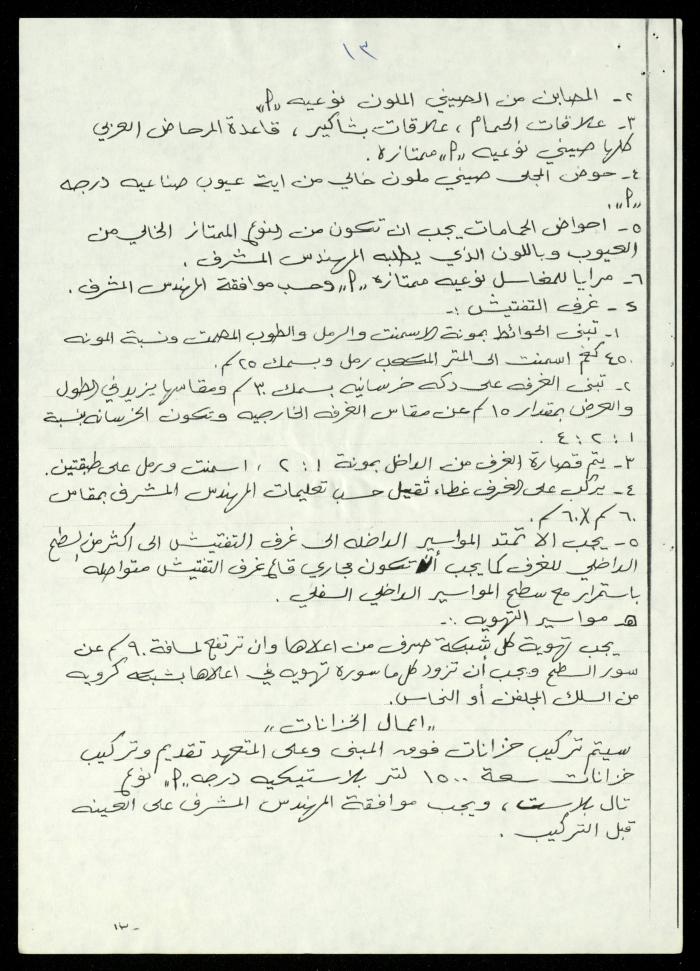 ١٣
٢- المصابن من الصيني الملون نوعيه "P"
٣- علاقات الحمام ، علاقات بشاكير ، قاعدة المرحاض العربي
كلها صيني نوعيه "P" ممتازه .
٤- حوض المجلى صيني ملون خالي من اية عيوب صناعيه درجه
"P" .
٥- احواض الحمامات يجب ان تتكون من النوع الممتاز الخالي من
العيوب وباللون الذي يطلبه المهندس المشرف .
٦- مرايا للمغاسل نوعيه ممتازه "P" وحسب موافقة المهندس المشرف .
د - غرف التفتيش :-
١- تبنى الحوائط بمونة الاسمنت والرمل والطوب المصمت ونسبة المونه
٤٥٠ كغم اسمنت الى المتر المكعب رمل وبسمك ٢٥ سم .
٢- تبنى الغرفه على دكه خرسانيه بسمك ٣٠ سم ومقاسها يزيد في الطول
والعرض بمقدار ١٥ سم عن مقاس الغرفه الخارجيه وتكون الخرسانه بنسبة
١ : ٢ : ٤ .
٣- يتم قصارة الغرف من الداخل بمونة ١ : ٢ ، اسمنت ورمل على طبقتين .
٤- يركب على الغرف غطاء ثقيل حسب تعليمات المهندس المشرف بمقاس
٦٠ سم X ٦٠ سم .
٥- يجب الا تمتد المواسير الداخله الى غرف التفتيش الى اكثر من السطح
الداخلي للغرف كما يجب أن تكون مجاري قاع غرف التفتيش متواصله
باستمرار مع سطح المواسير الداخلي السفلي .
هـ مواسير التهويه :-
يجب تهوية كل شبكة صرف من اعلاها وان ترتفع لمسافة ٩٠ سم عن
سور السطح ويجب أن تزود كل ماسورة تهويه في اعلاها بشبكه كرويه
من السلك المجلفن أو النحاس .
"اعمال الخزانات"
سيتم تركيب خزانات فوق المبنى وعلى المتعهد تقديم وتركيب
خزانات سعة ١٥٠٠ لتر بلاستيكيه درجه "P" نوع
تال بلاست ، ويجب موافقة المهندس المشرف على العينه
قبل التركيب .
- ١٣